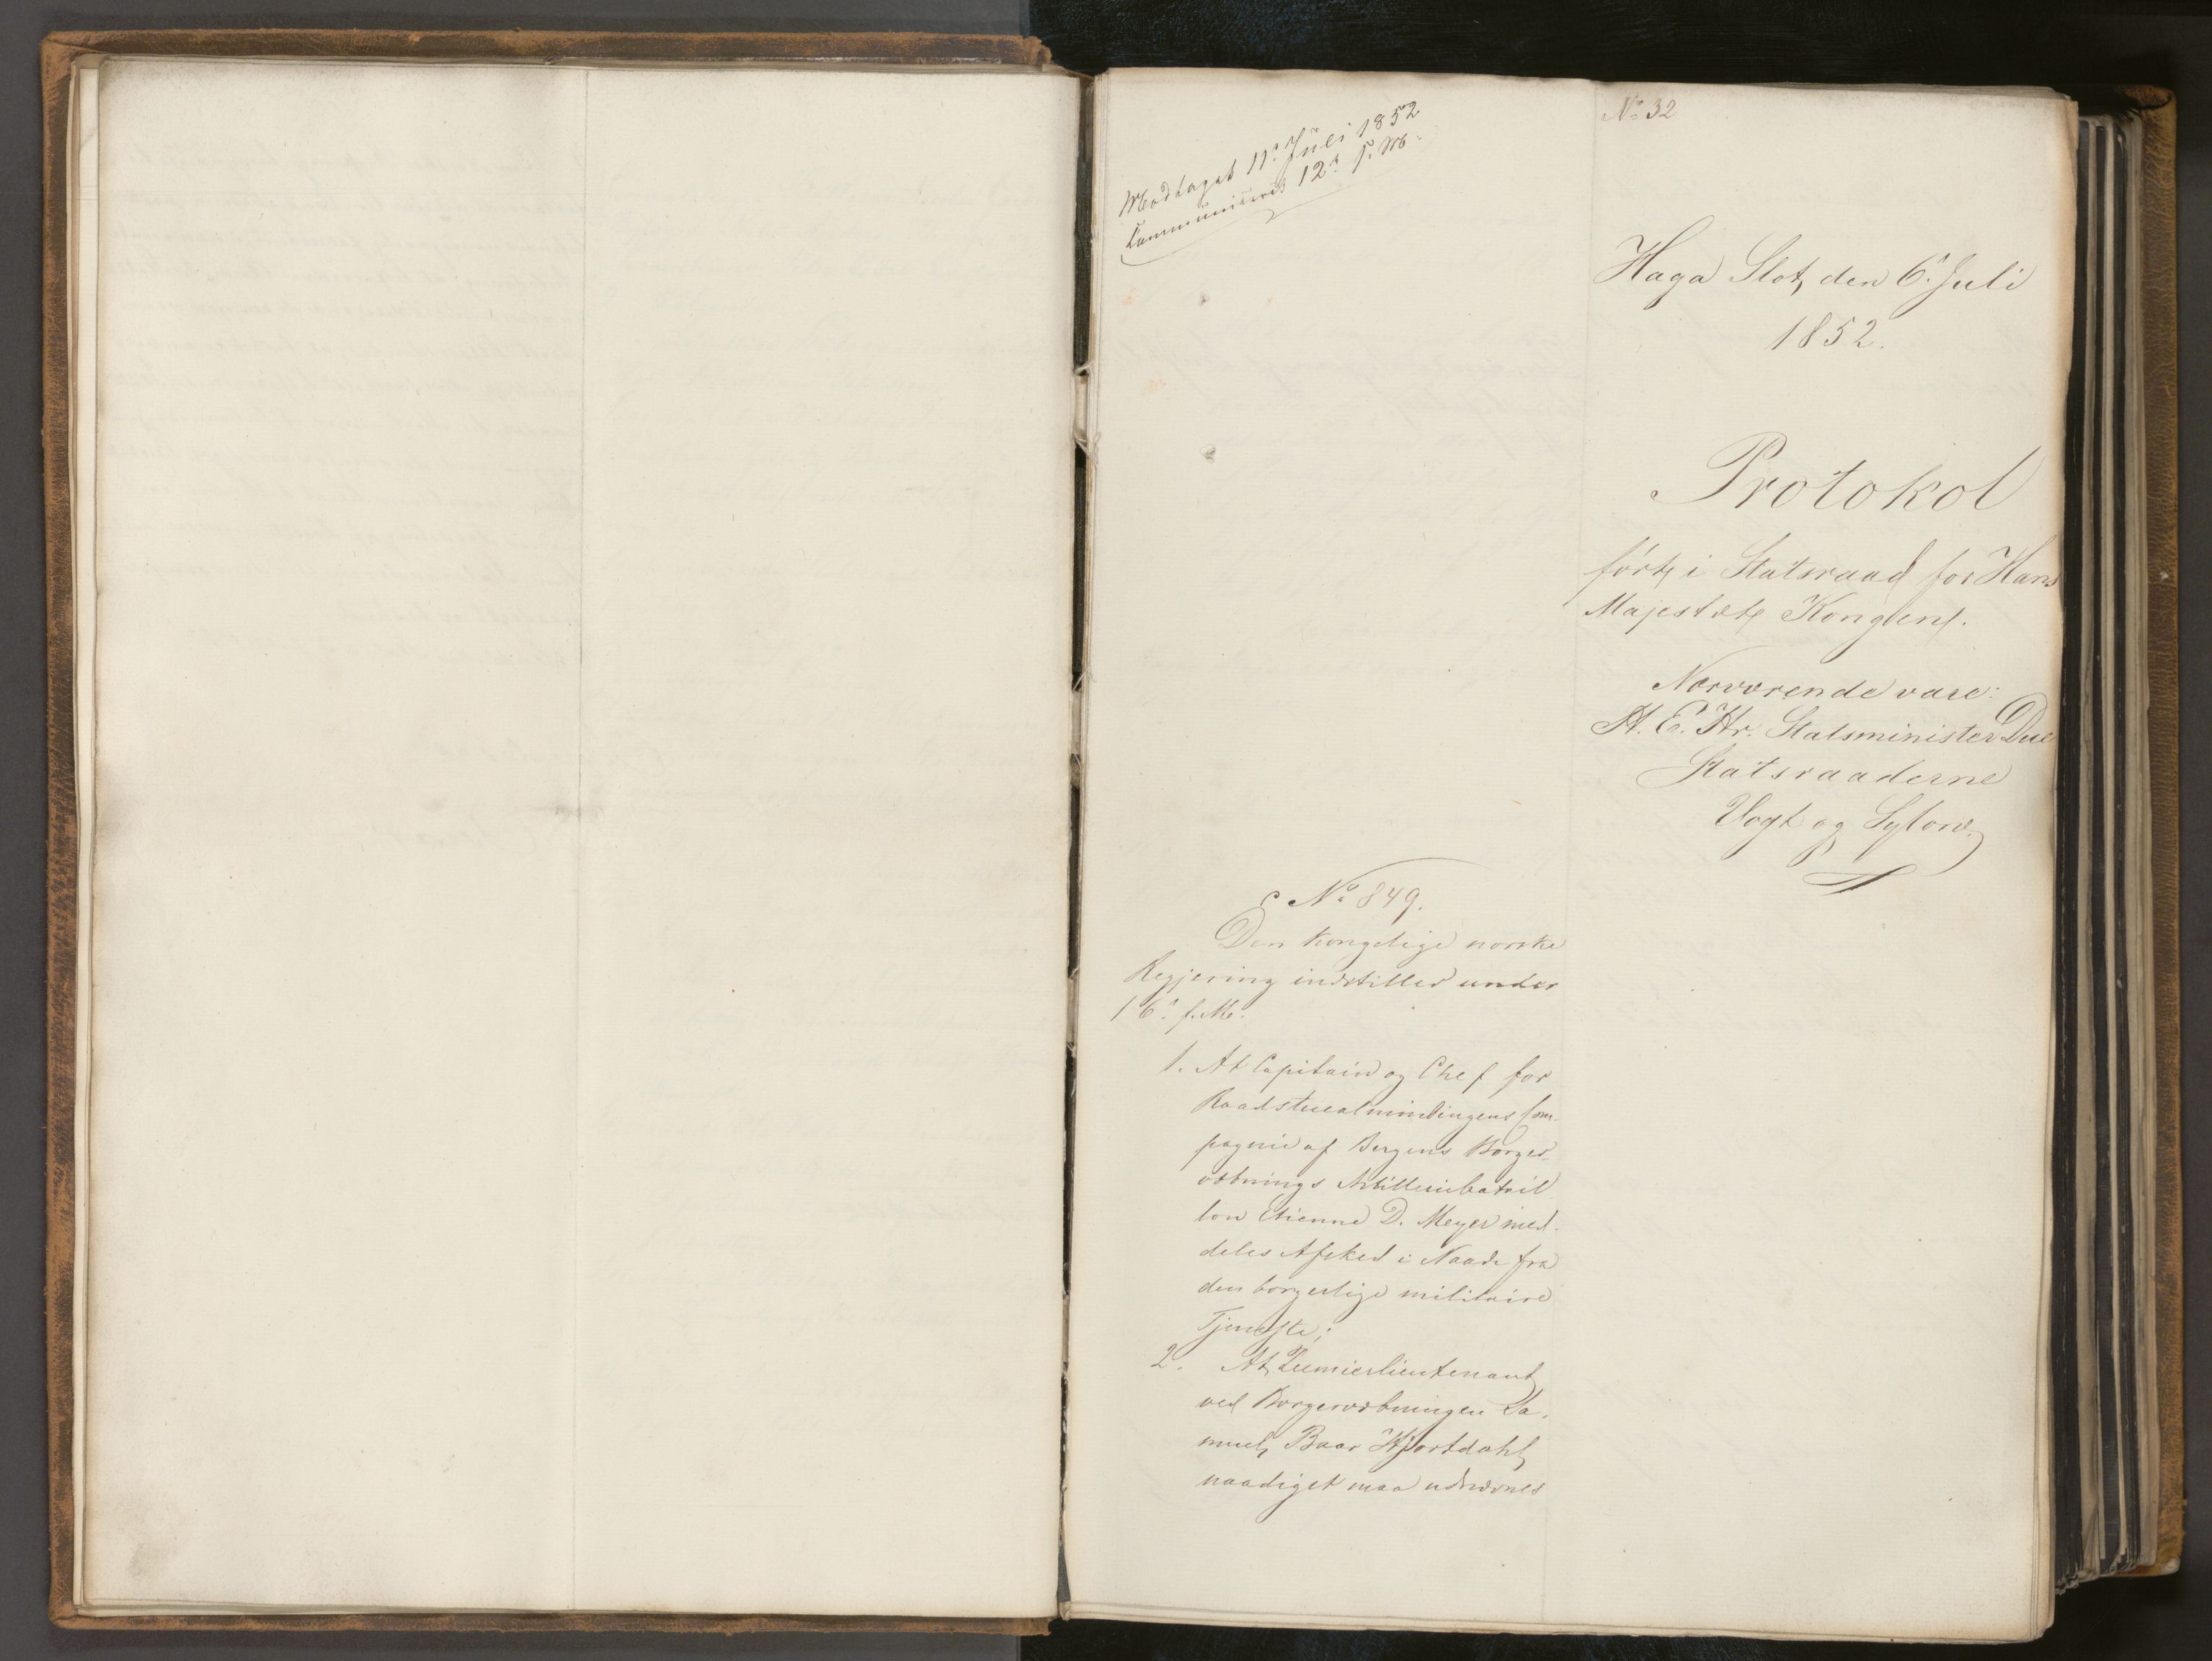 Modtaget 11te Juli 1852
Kommuniceret 12te s. M.
No 32
Haga Slot, den 6te Juli
1852.
Protokol
ført i Statsraad for Hans
Majestæt Kongen.
Nærværende vare:
H. E. Hr. Statsminister Due
Statsraaderne
Vogt og Sylow.
No 849.
Den kongelige norske
Regjering indstiller under
16de f. M.
1. At Capitain og Chef for
Raadstuealmindingens Com-
pagnie af Bergens Borger-
væbnings Artilleribatail
lon Etienne D. Meyer med-
deles Afsked i Naade fra
den borgerlige militaire
Tjeneste;
2. At Premierlieutenant
ved Borgervæbningen Sa-
muel Baar Hjortdahl
naadigst maa udnævnes